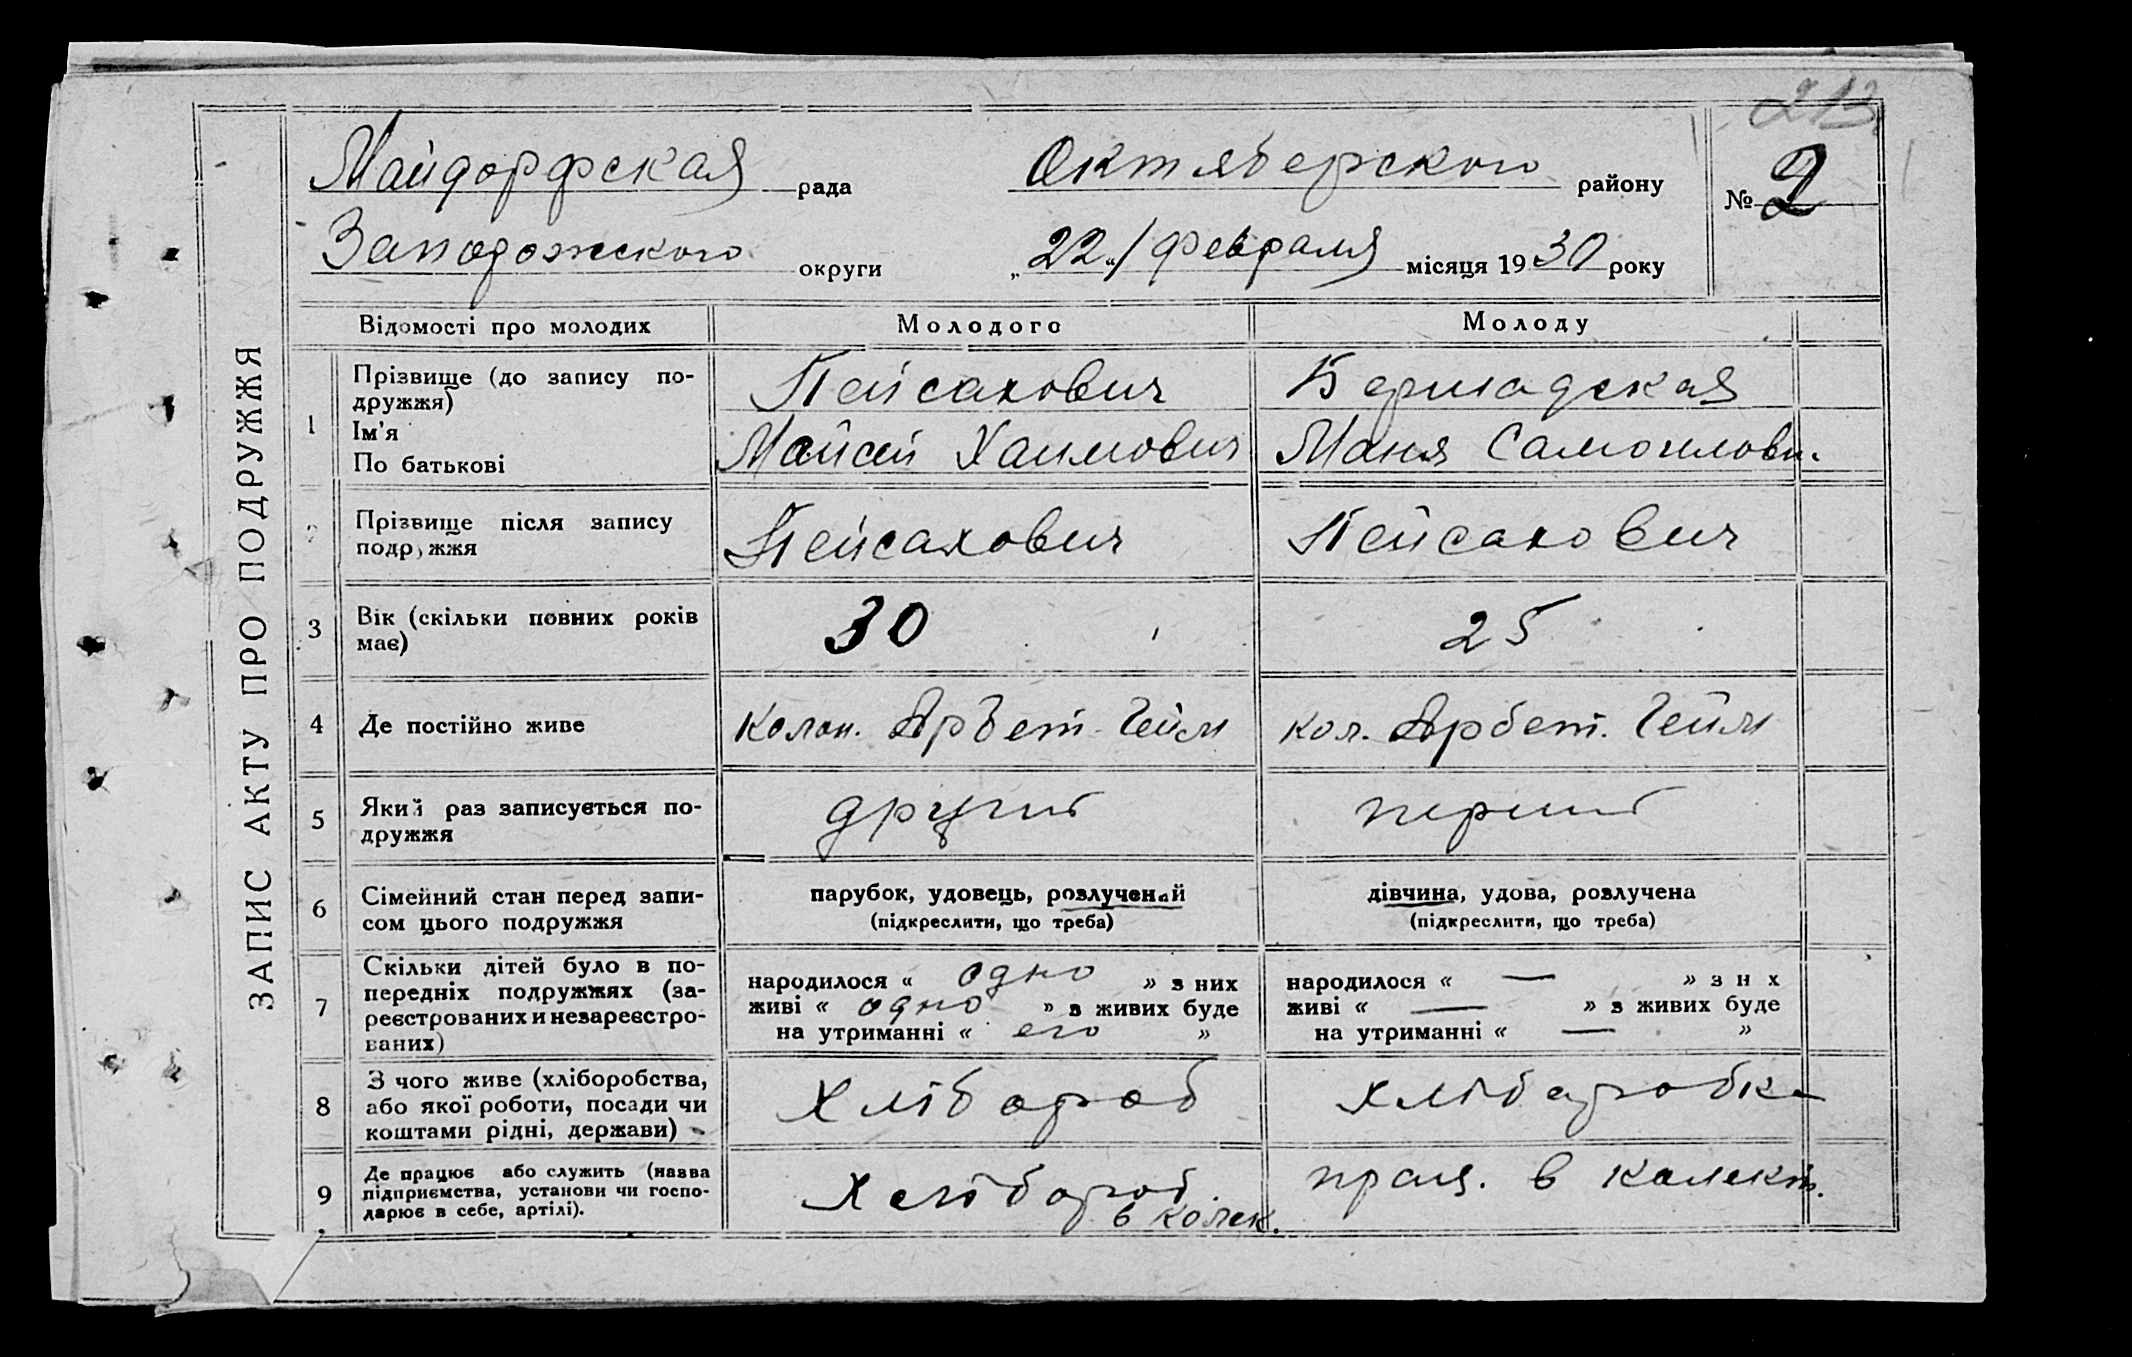 213
Майдорфская рада Октяберского району № 2
Запорожского округи „22“/февраля місяця 1930 року
ЗАПИС АКТУ ПРО ПОДРУЖЖЯ
Відомості про молодих Молодого Молоду
1 Прізвище (до запису по-
дружжя)
Ім'я
По батькові
Пейсахович
Мойсей Хаимович
Бершадская
Маня Самоилови.
2 Прізвище після запису
подружжя
Пейсахович Пейсахович
3 Вік (скільки повних років
має)
30 25
4 Де постійно живе колон. Арбет-Гейм кол. Арбет. Гейм
5 Який раз записується по-
дружжя
другий перший
6 Сімейний стан перед запи-
сом цього подружжя
парубок, удовець, розлучений
(підкреслити, що треба)
дівчина, удова, розлучена
(підкреслити, що треба)
7 Скільки дітей було в по-
передніх подружжях (за-
реєстрованих и незареєстро-
ваних)
народилося « одно » з них
живі « одно » з живих буде
на утриманні « его »
народилося « — » з н х
живі « — » з живих буде
на утриманні « — »
8 З чого живе (хліборобства,
або якої роботи, посади чи
коштами рідні, держави)
Хлібороб хліборобка
9 Де працює або служить (назва
підприємства, установи чи госпо-
дарює в себе, артілі).
Хлібороб.
в колек.
прац. в колект.